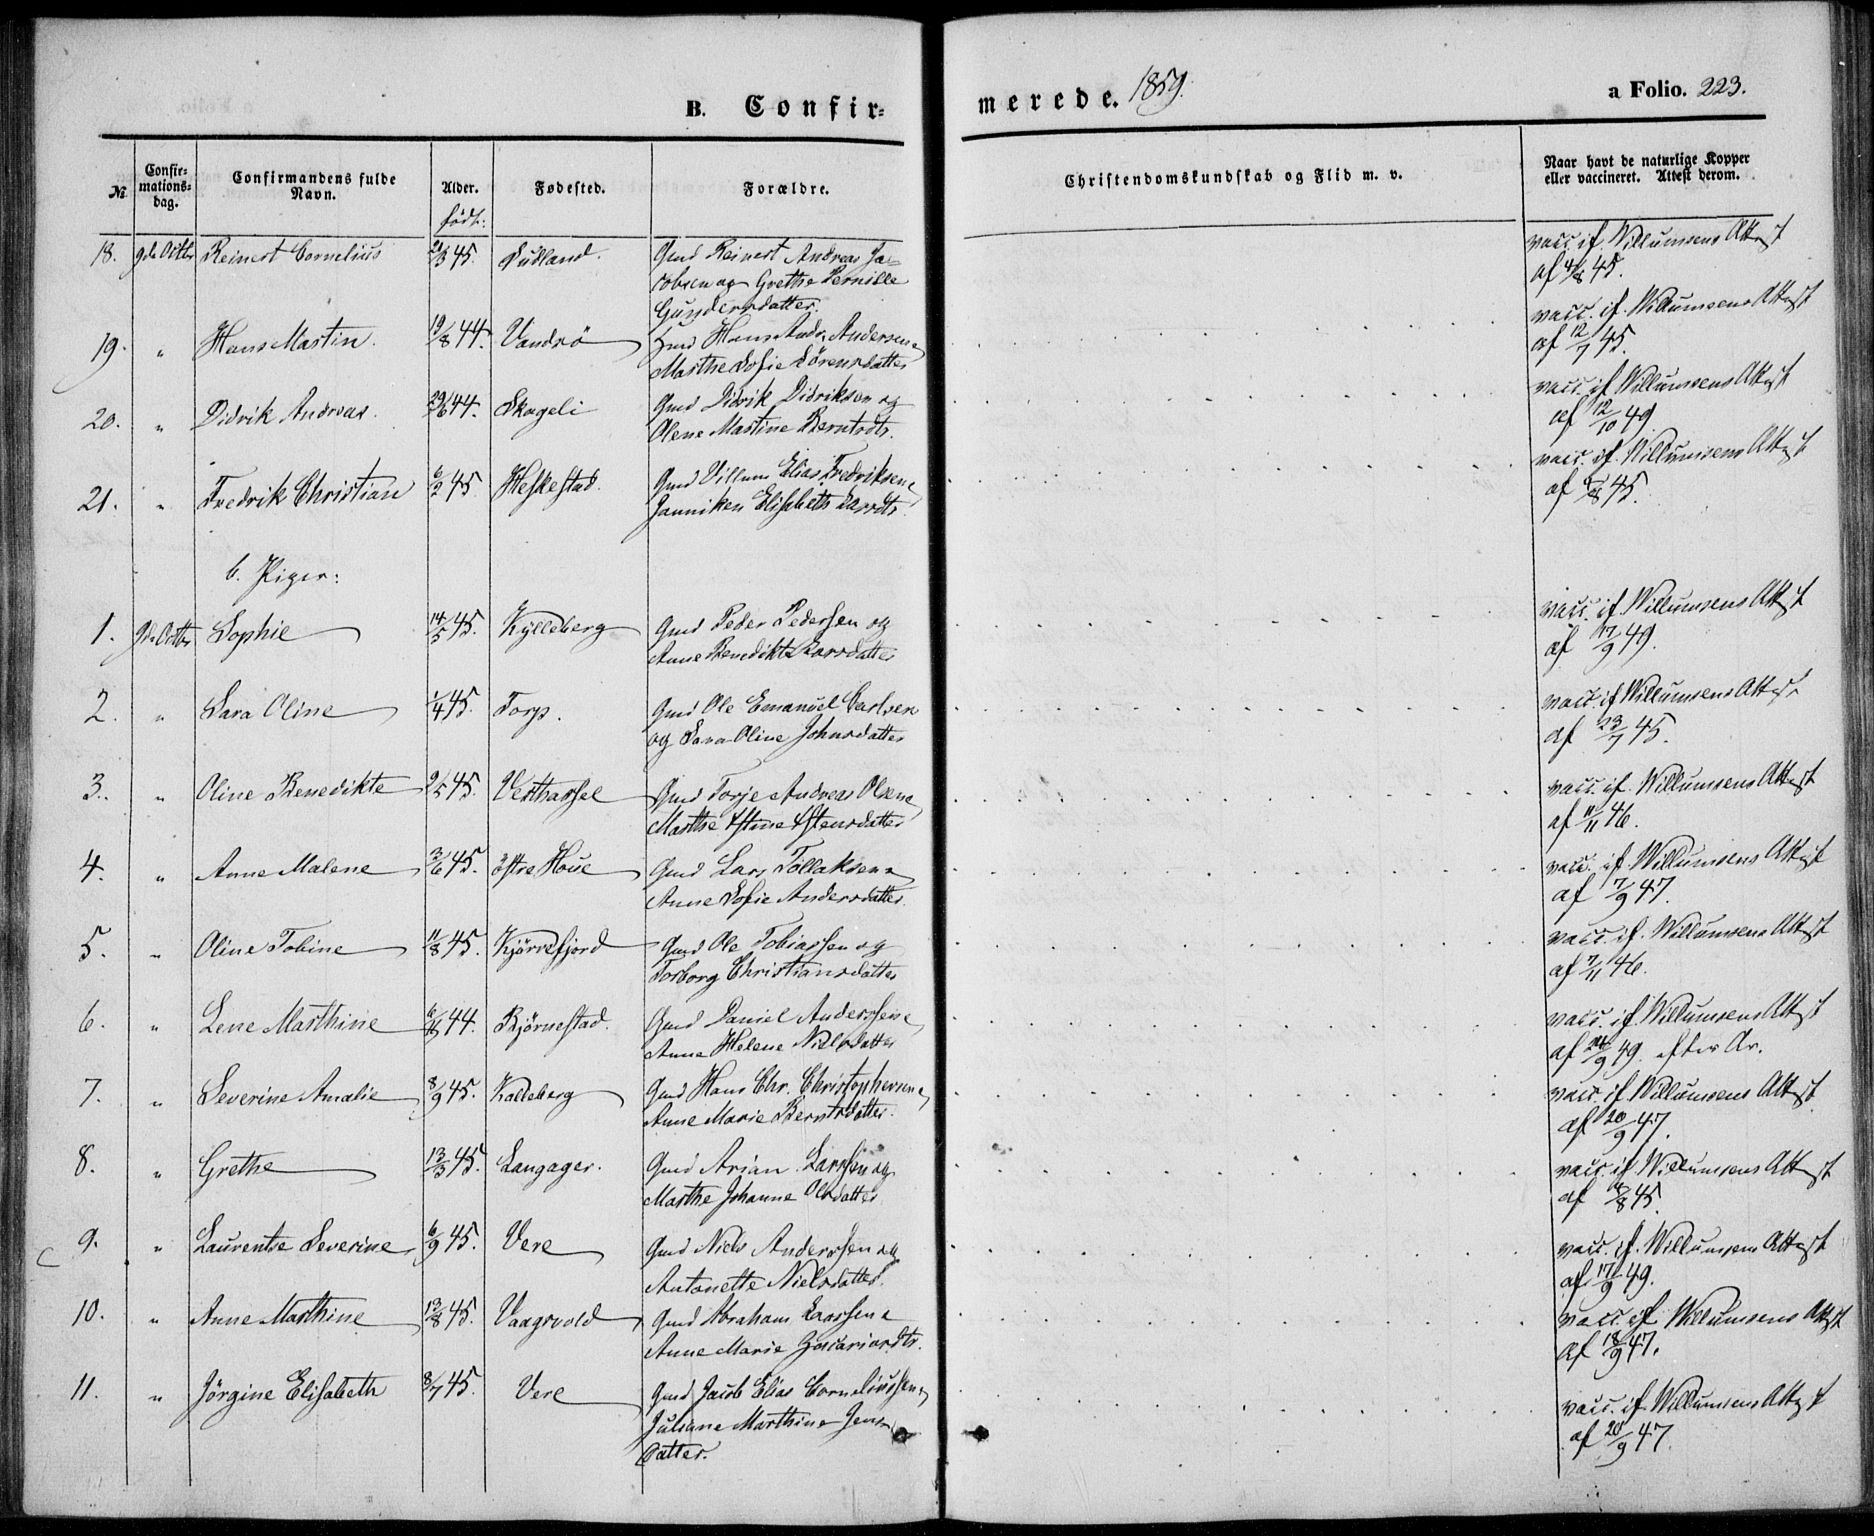 B. Confir-
merede. 1859.
a Folio. 223.
№
Confir-
mations-
dag.
Confirmandens fulde
Navn.
Alder.
født:
Fødested.
Forældre.
Christendomskundskab og Flid m. v.
Naar havt de naturlige Kopper
eller vaccineret. Attest derom.
18. 9de Octbr Reinert Cornelius 45. Gmd Reinert Andreas Ja-
cobsen og Grethe Pernille
Gundersdatter.
vacc. if. Willumsens Attest
af 4/8 45.
19. " Hans Martin. 19/8 44. Vandsö Hans Andr. Andersen
Marthe Sofie Sörensdatter
vacc. if. Willumsens Attest
af 12/7 45.
20. " Didrik Andreas. 29/6 44. Skageli Gmd Didrik Didriksen og
Olene Martine Berntsdtr.
vacc. if. Willumsens Attest
af 12/10 49.
21. " Fredrik Christian 6/2 45. Heskestad. Gmd Villum Elias Fredriksen
Janniken Elisabeth Larsdtr.
vacc. if. Willumsens Attest
af 45.
b. Piger:
1. 9de Octbr Sophie 14/5 45. Kylleberg Gmd Peder Pedersen og
Anne Benedikte Larsdatter
vacc. if. Willumsens Attest
af 17/9 49.
2. " Sara Oline 1/4 45. Torp. Gmd Ole Emanuel Carlsen
og Sara Oline Johnsdatter
vacc. if Willumsens Attest
af 23/7 45.
3. " Oline Benedikte 9/5 45. Vesthassel Gmd Torje Andreas Olsen
Marthe Astine Astensdatter
vacc. if. Willumsens Attest
af 11/11 46.
4. " Anne Malene 3/6 45. Østre Houe Gmd Lars Tollaksen
Anne Sofie Andersdatter.
vacc. if. Willumsens Attest
af 7/9 47.
5. " Oline Tobine 11/8 45. Kjørrefjord Gmd Ole Tobiassen og
Torborg Christiansdatter
vacc. if. Willumsens Attest
af 7/11 46.
6. " Lene Marthine 44. Bjørnestad. Gmd Daniel Anderssen
Anne Helene Nielsdatter
vacc. if. Willumsens Attest
af 24/9 49. efter Ar.
7. " Severine Amalie 8/9 45. Kalleberg Gmd Hans Chr. Christophersen
Anne Marie Berntsdatter.
vacc. if Willumsens Attest
af 20/9 47.
8. " Grethe 13/3 45. Langager. Gmd Arian Larssen og
Marthe Johanne Olsdatter
vacc. if. Willumsens Attest
af 45.
9. " Laurentse Severine 6/9 45. Vere Gmd Niels Anderssen og
Antonette Nielsdatter.
vacc. if. Willumsens Attest
af 17/9 49.
10. " Anne Marthine 13/8 45. Vaagsvold Gmd Abraham Larssen
Anne Marie Zacariasdtr.
vacc. if. Willumsens Attest
af 18/9 47.
11. " Jörgine Elisabeth 8/7 45. Vere Gmd Jacob Elias Corneliussen
Juliane Marthine Jens-
datter.
vacc. if. Willumsens Attest
af 20/9 47.